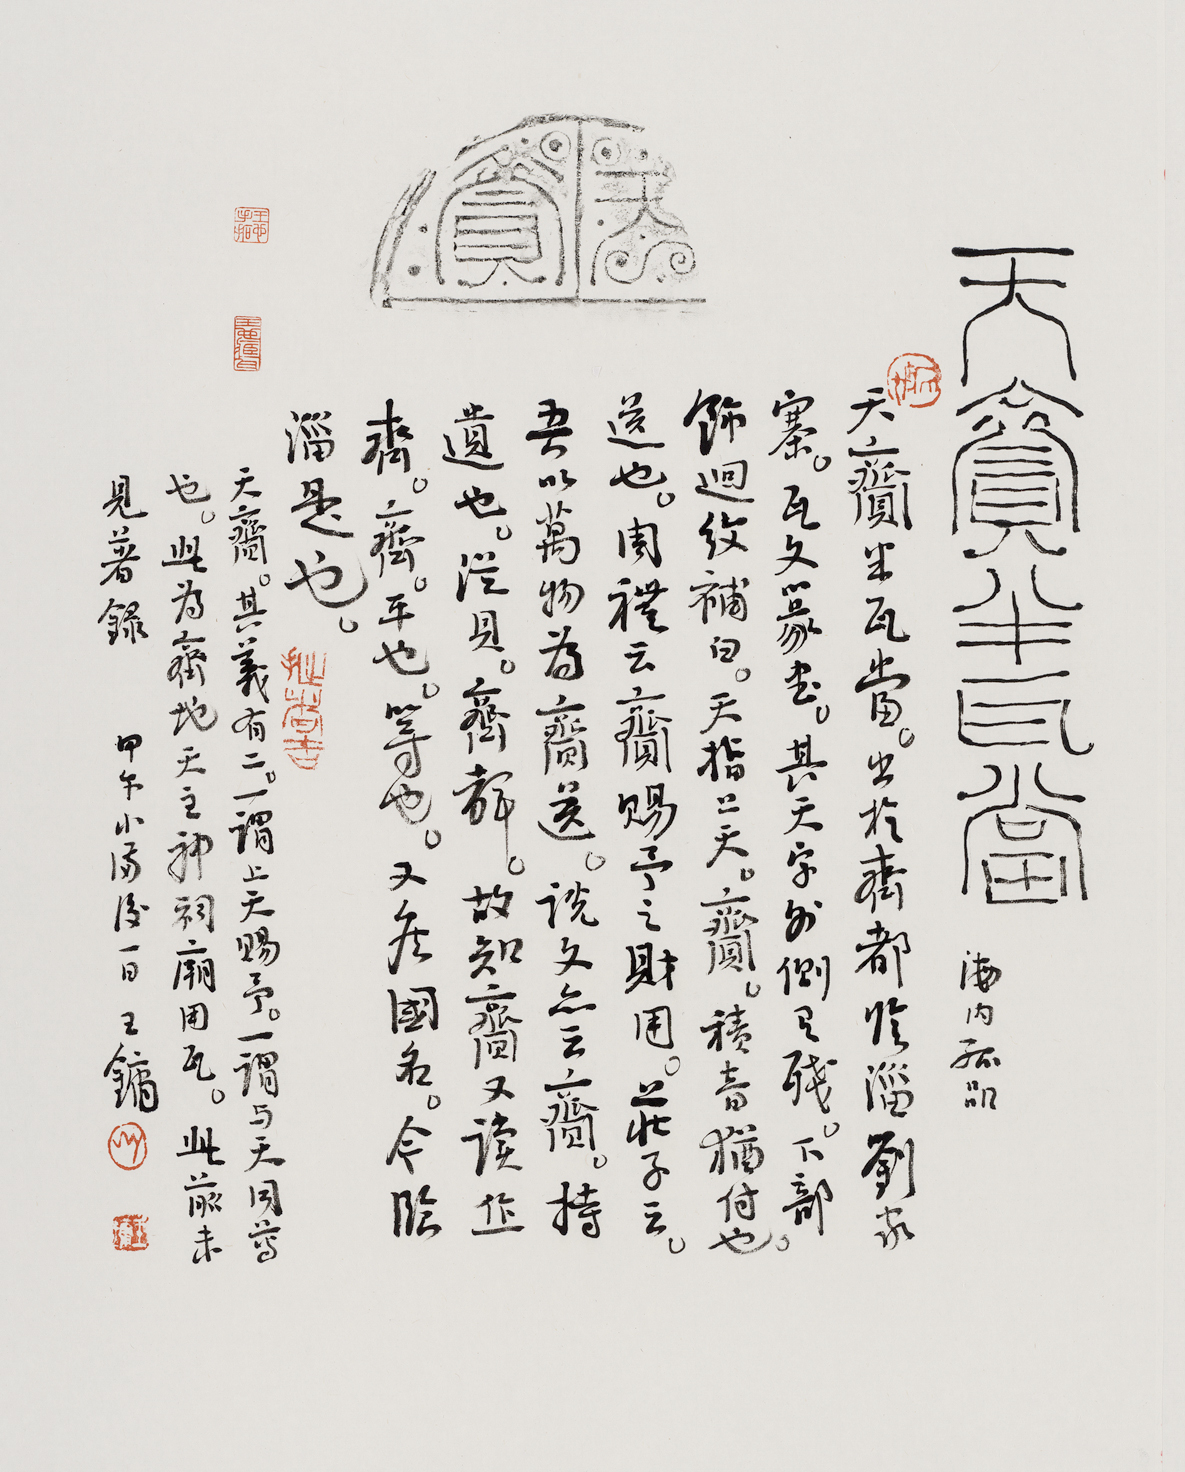 天齎半瓦當
海内孤品
天齎半瓦當。出於齊都臨淄劉家
寨。瓦文篆書。其天字外側已殘。下部
飾迴紋補白。天指上天。齎。積音猶付也。
送也。周禮云齎賜予之財用。莊子云。
吾以萬物為齎送。說文亦云齎。持
遺也。從貝。齊聲。故知齎又讀作
齊。齊。平也。等也。又古國名。今臨
淄是也。
天齎。其義有二。一謂上天賜予。一謂与天同尊
也。此為齊地天主神祠廟用瓦。此前未
見著録
甲午小滿後一日王鏞